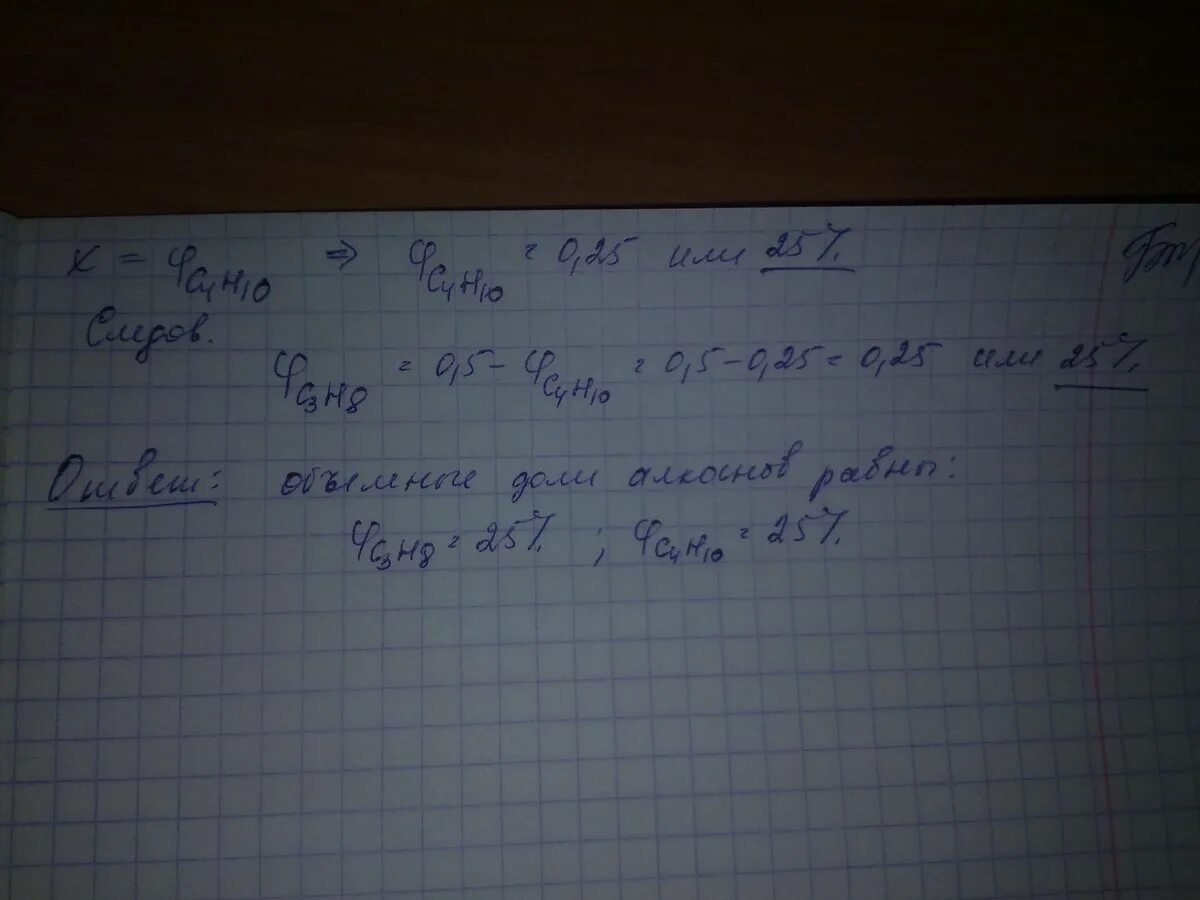 x = φC₄H₁₀ ⇒ φC₄H₁₀ = 0,25 или 25%.
Следов.
φC₃H₈ = 0,5 - φC₄H₁₀ = 0,5 - 0,25 = 0,25 или 25%.
Ответ: объемные доли алканов равны:
φC₃H₈ = 25%. ; φC₄H₁₀ = 25%.